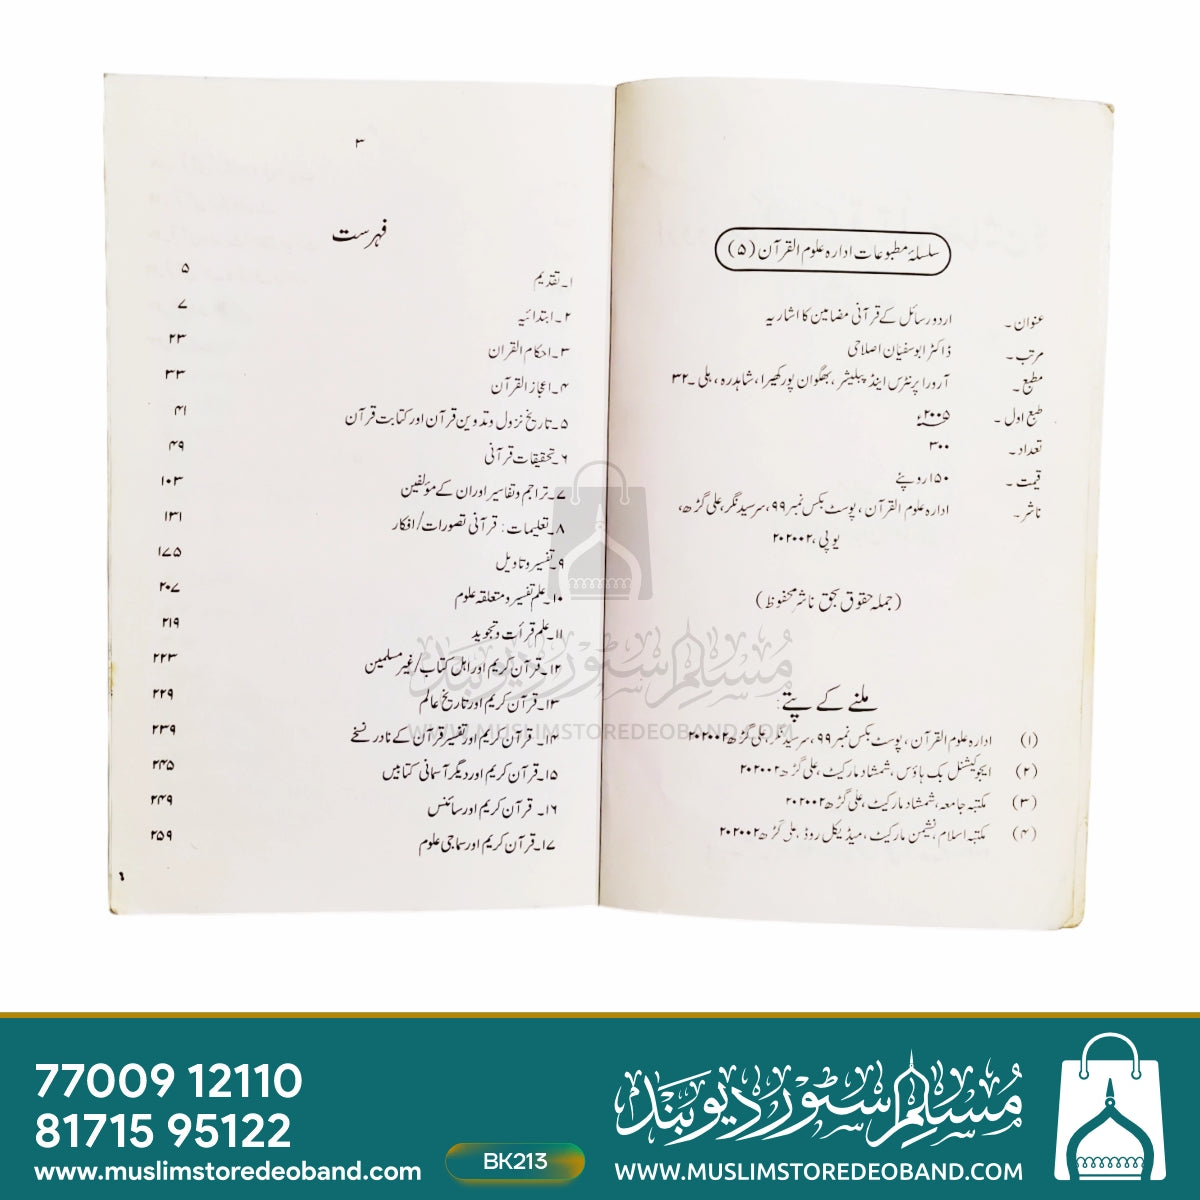 سلسلۂ مطبوعات ادارہ علوم القرآن (۵)
عنوان۔ اردو رسائل کے قرآنی مضامین کا اشاریہ
مرتب۔ ڈاکٹر ابوسفیان اصلاحی
مطبع۔ آرورا پرنٹرس اینڈ پبلیشر، بھگوان پور کھیرا، شاہدرہ، دہلی۔۳۲
طبع اول۔ ۲۰۰۵ء
تعداد۔ ۳۰۰
قیمت۔ ۱۵۰ روپئے
ناشر۔ ادارہ علوم القرآن، پوسٹ بکس نمبر ۹۹، سرسید نگر، علی گڑھ،
یوپی، ۲۰۲۰۰۲
(جملہ حقوق بحق ناشر محفوظ)
ملنے کے پتے:
(۱) ادارہ علوم القرآن، پوسٹ بکس نمبر ۹۹، سرسید نگر، علی گڑھ ۲۰۲۰۰۲
(۲) ایجوکیشنل بک ہاؤس، شمشاد مارکیٹ، علی گڑھ ۲۰۲۰۰۲
(۳) مکتبہ جامعہ، شمشاد مارکیٹ، علی گڑھ ۲۰۲۰۰۲
(۴) مکتبہ اسلام، نشیمن مارکیٹ، میڈیکل روڈ، علی گڑھ ۲۰۲۰۰۲
۳
فہرست
۱۔ تقدیم ۵
۲۔ ابتدائیہ ۷
۳۔ احکام القران ۲۳
۴۔ اعجاز القرآن ۳۳
۵۔ تاریخ نزول و تدوین قرآن اور کتابت قرآن ۴۱
۶۔ تحقیقات قرآنی ۴۹
۷۔ تراجم و تفاسیر اور ان کے مؤلفین ۱۰۳
۸۔ تعلیمات: قرآنی تصورات/افکار ۱۳۱
۹۔ تفسیر و تاویل ۱۷۵
۱۰۔ علم تفسیر و متعلقہ علوم ۲۰۷
۱۱۔ علم قرأت و تجوید ۲۱۹
۱۲۔ قرآن کریم اور اہل کتاب/غیر مسلمین ۲۲۳
۱۳۔ قرآن کریم اور تاریخ عالم ۲۲۹
۱۴۔ قرآن کریم اور تفسیر قرآن کے نادر نسخے ۲۳۹
۱۵۔ قرآن کریم اور دیگر آسمانی کتابیں ۲۴۵
۱۶۔ قرآن کریم اور سائنس ۲۴۹
۱۷۔ قرآن کریم اور سماجی علوم ۲۵۹
مسلم سٹور دیوبند
WWW.MUSLIMSTOREDEOBAND.COM
77009 12110
81715 95122
www.muslimstoredeoband.com
BK213
مسلم سٹور دیوبند
WWW.MUSLIMSTOREDEOBAND.COM